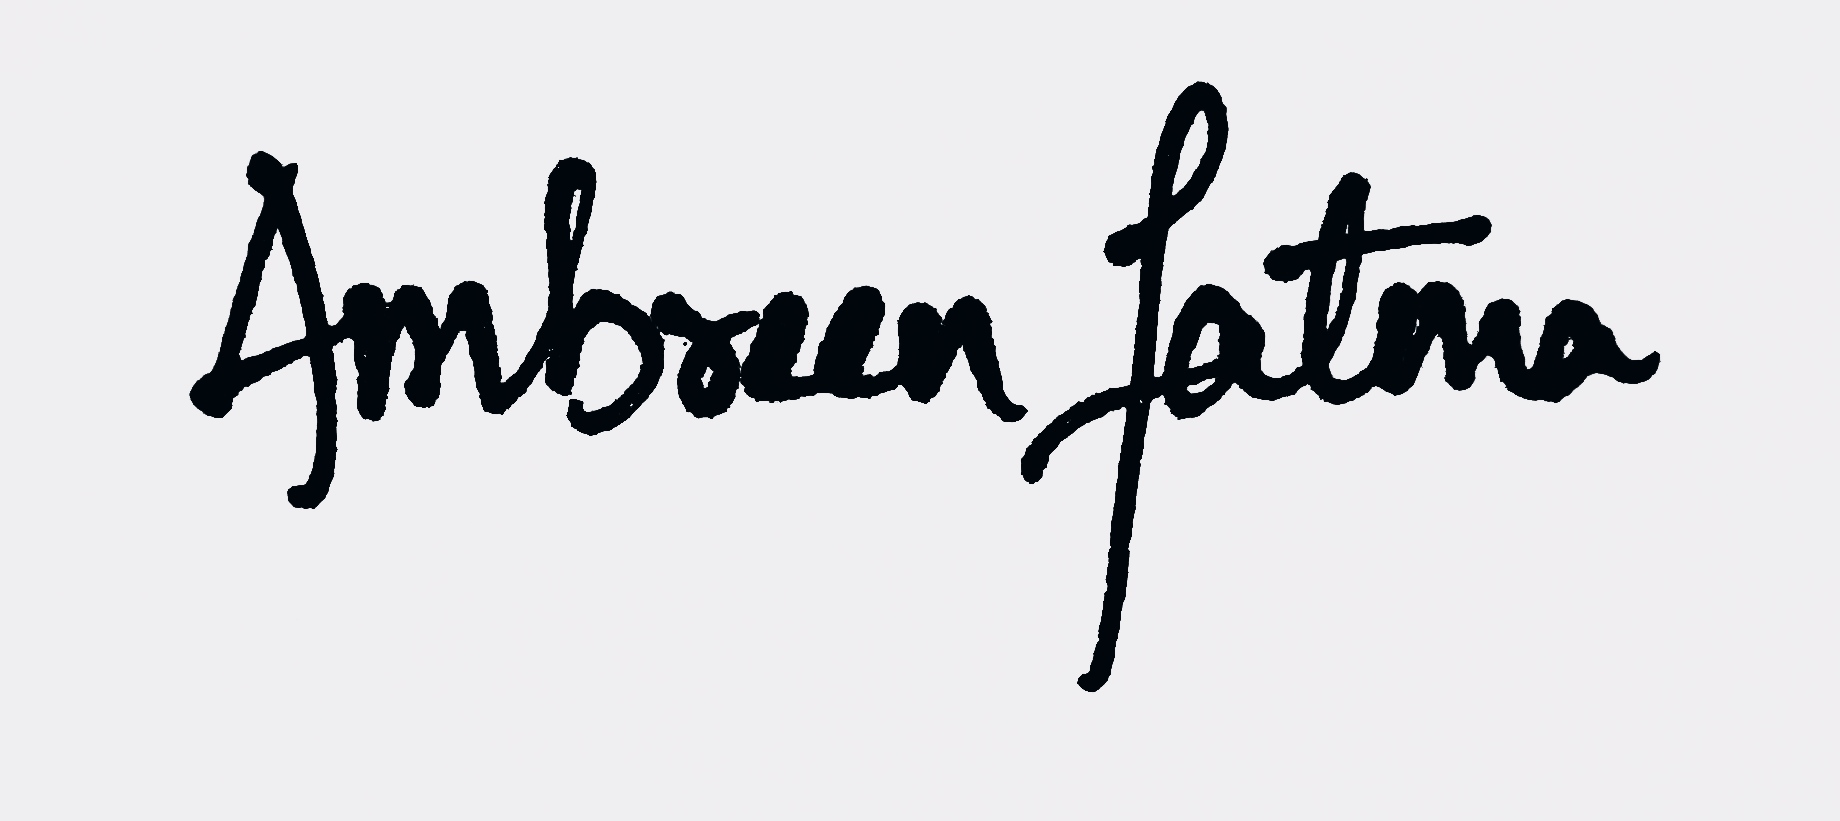 Ambreen fatma